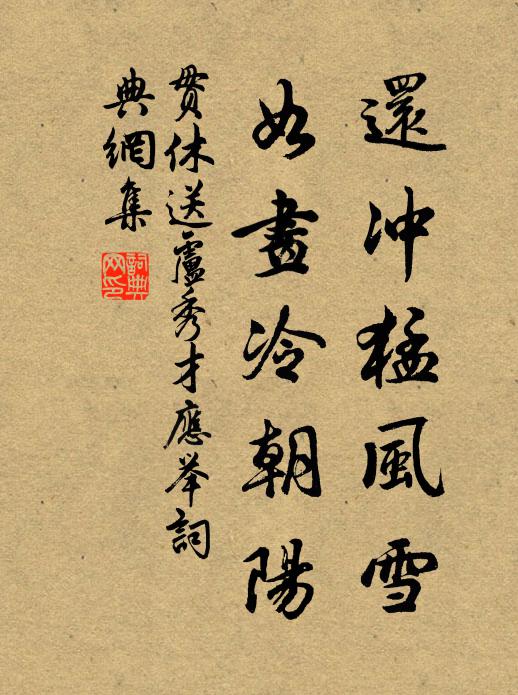 還冲猛風雪
如畫冷朝陽
貫休送盧秀才應举詞
典網集
詞典
网印